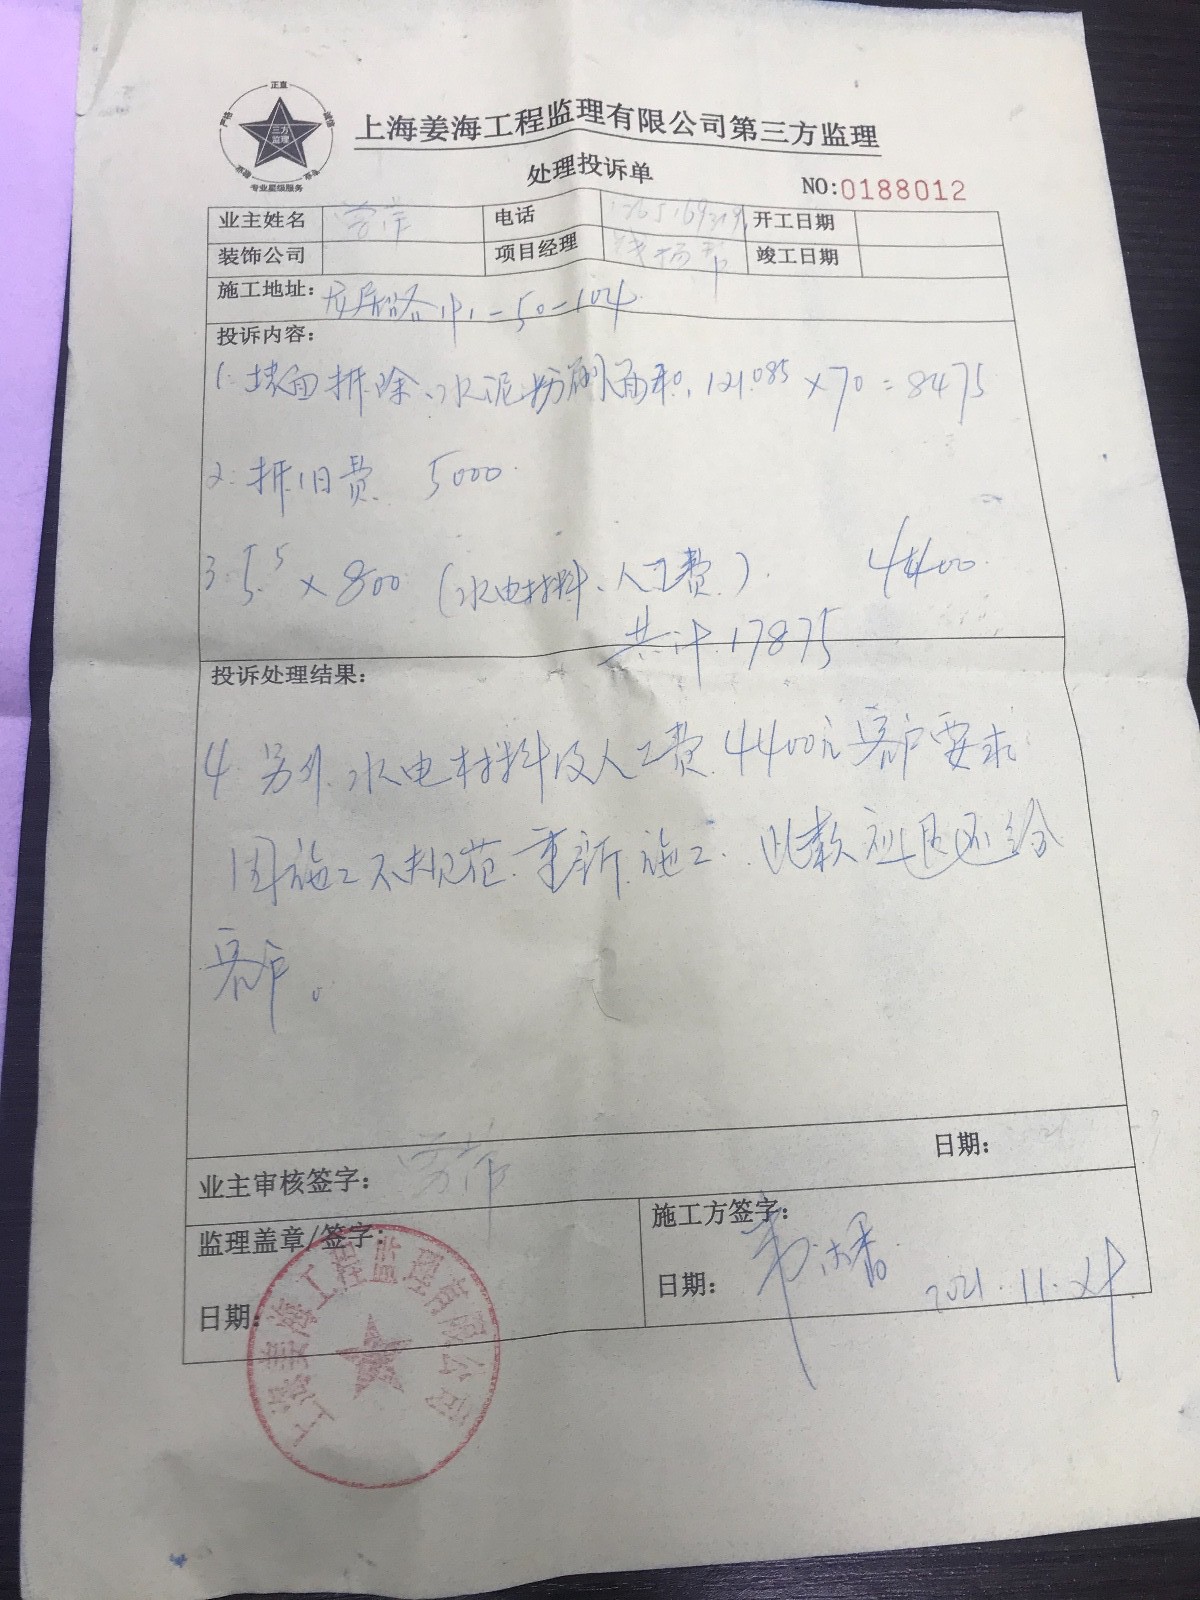 正直
严格
诚信
三方
监理
专业星级服务
上海姜海工程监理有限公司第三方监理
处理投诉单
NO:0188012
业主姓名 电话 开工日期
装饰公司 项目经理 竣工日期
施工地址: 龙居路 弄-50-104
投诉内容:
1. 墙面拆除、水泥粉刷面积. 121.085 × 70 = 8475
2. 拆旧费 5000.
3. 5.5 × 800 (水电材料、人工费). 4400.
共计 17875
投诉处理结果:
4 另外.水电材料及人工费.4400元客户要求
因施工不规范.重新施工..此款 退还给
客户。
业主审核签字: 日期:
监理盖章/签字: 施工方签字:
日期: 日期: 2021.11.24
上海姜海工程监理有限公司